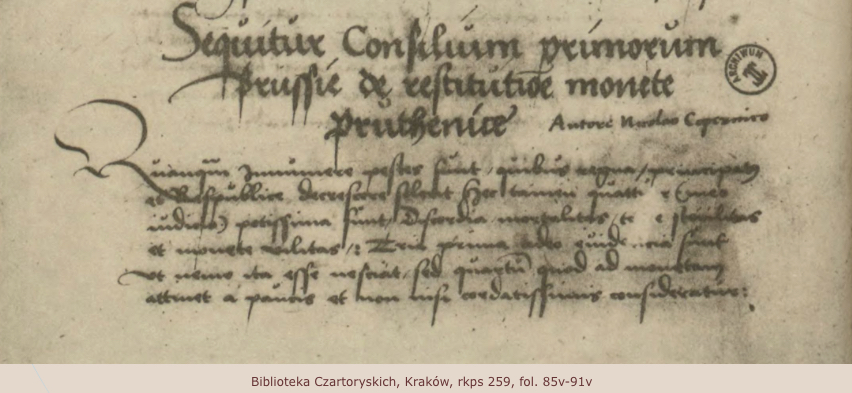 Sequitur Consilium primorum
prussie de restitutiõe monete
pruthenice
Autore Nicolao Copernico
ARCHIWUM
Quanqũ Innumere pestes sunt, quibus regna, principatus
et Respublice decrescere solent he tamen quattuor (meo
iudicio) potissima sunt, Discordia mortalitas, terre sterilitas
et monete vilitas, : Tria prima adeo euidencia sunt
vt nemo ita esse nesciat, sed quartũ quod ad monetam
attinet a paucis et non nisi cordatissimis consideratur:
Biblioteka Czartoryskich, Kraków, rkps 259, fol. 85v-91v